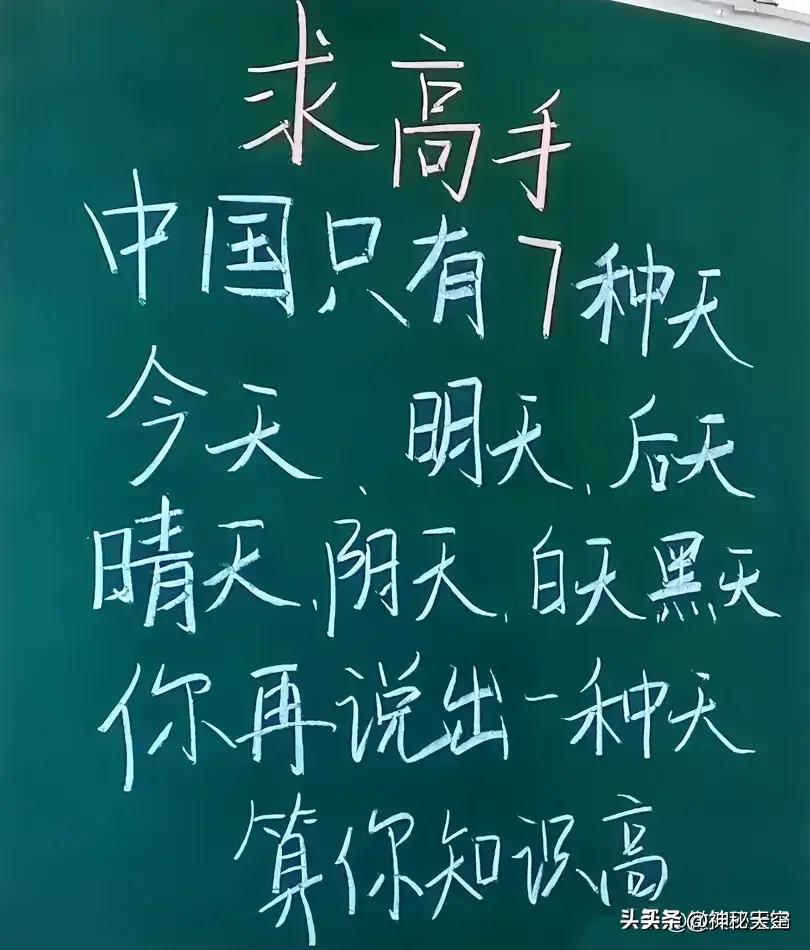 求高手
中国只有7种天
今天、明天、后天
晴天、阴天、白天黑天
你再说出一种天
算你知识高
头条 @神秘天空